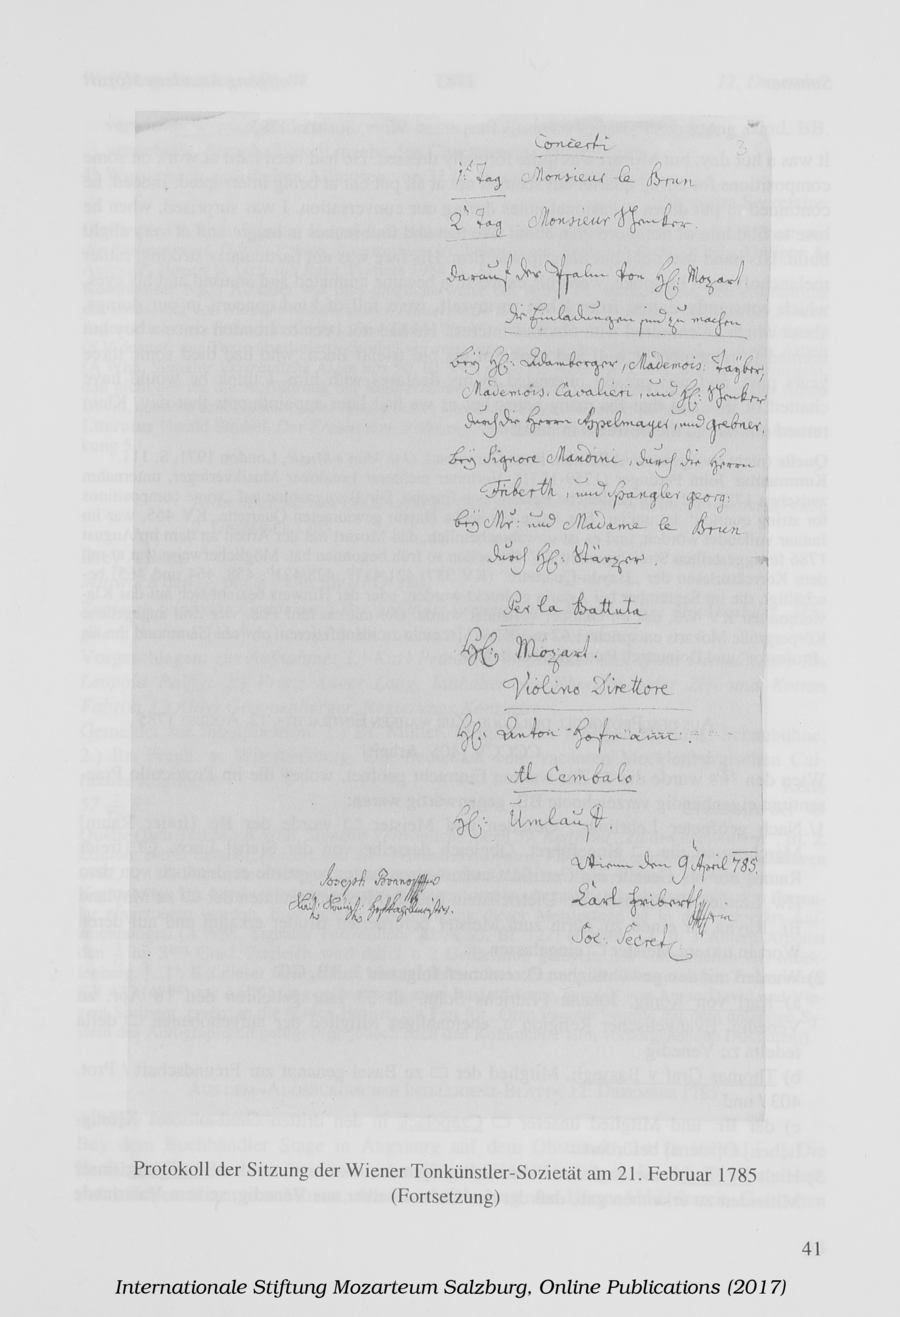 Concerti
3
1t Tag Monsieur le Brun
2t Tag Monsieur Schenker.
darauf der Psalm von H: Mozart
die Einladungen sind zu machen
beÿ H: Adamberger, Mademois: Taÿber,
Mademois: Cavalieri, und H: Schenker
durch die Herrn Aspelmayer, und Grebner.
beÿ Signore Mandini, durch die Herrn
Friberth, und Spangler georg:
beÿ Mr: und Madame le Brun
durch H: Stärzer.
Per la Battuta
H: Mozart.
Violino Direttore
H: Anton Hofmann.
Al Cembalo
H: Umlauft.
Wienn den 9 April 785.
Joseph Bonno
Carl Friberth
Soc: Secret
Protokoll der Sitzung der Wiener Tonkünstler-Sozietät am 21. Februar 1785
(Fortsetzung)
41
Internationale Stiftung Mozarteum Salzburg, Online Publications (2017)